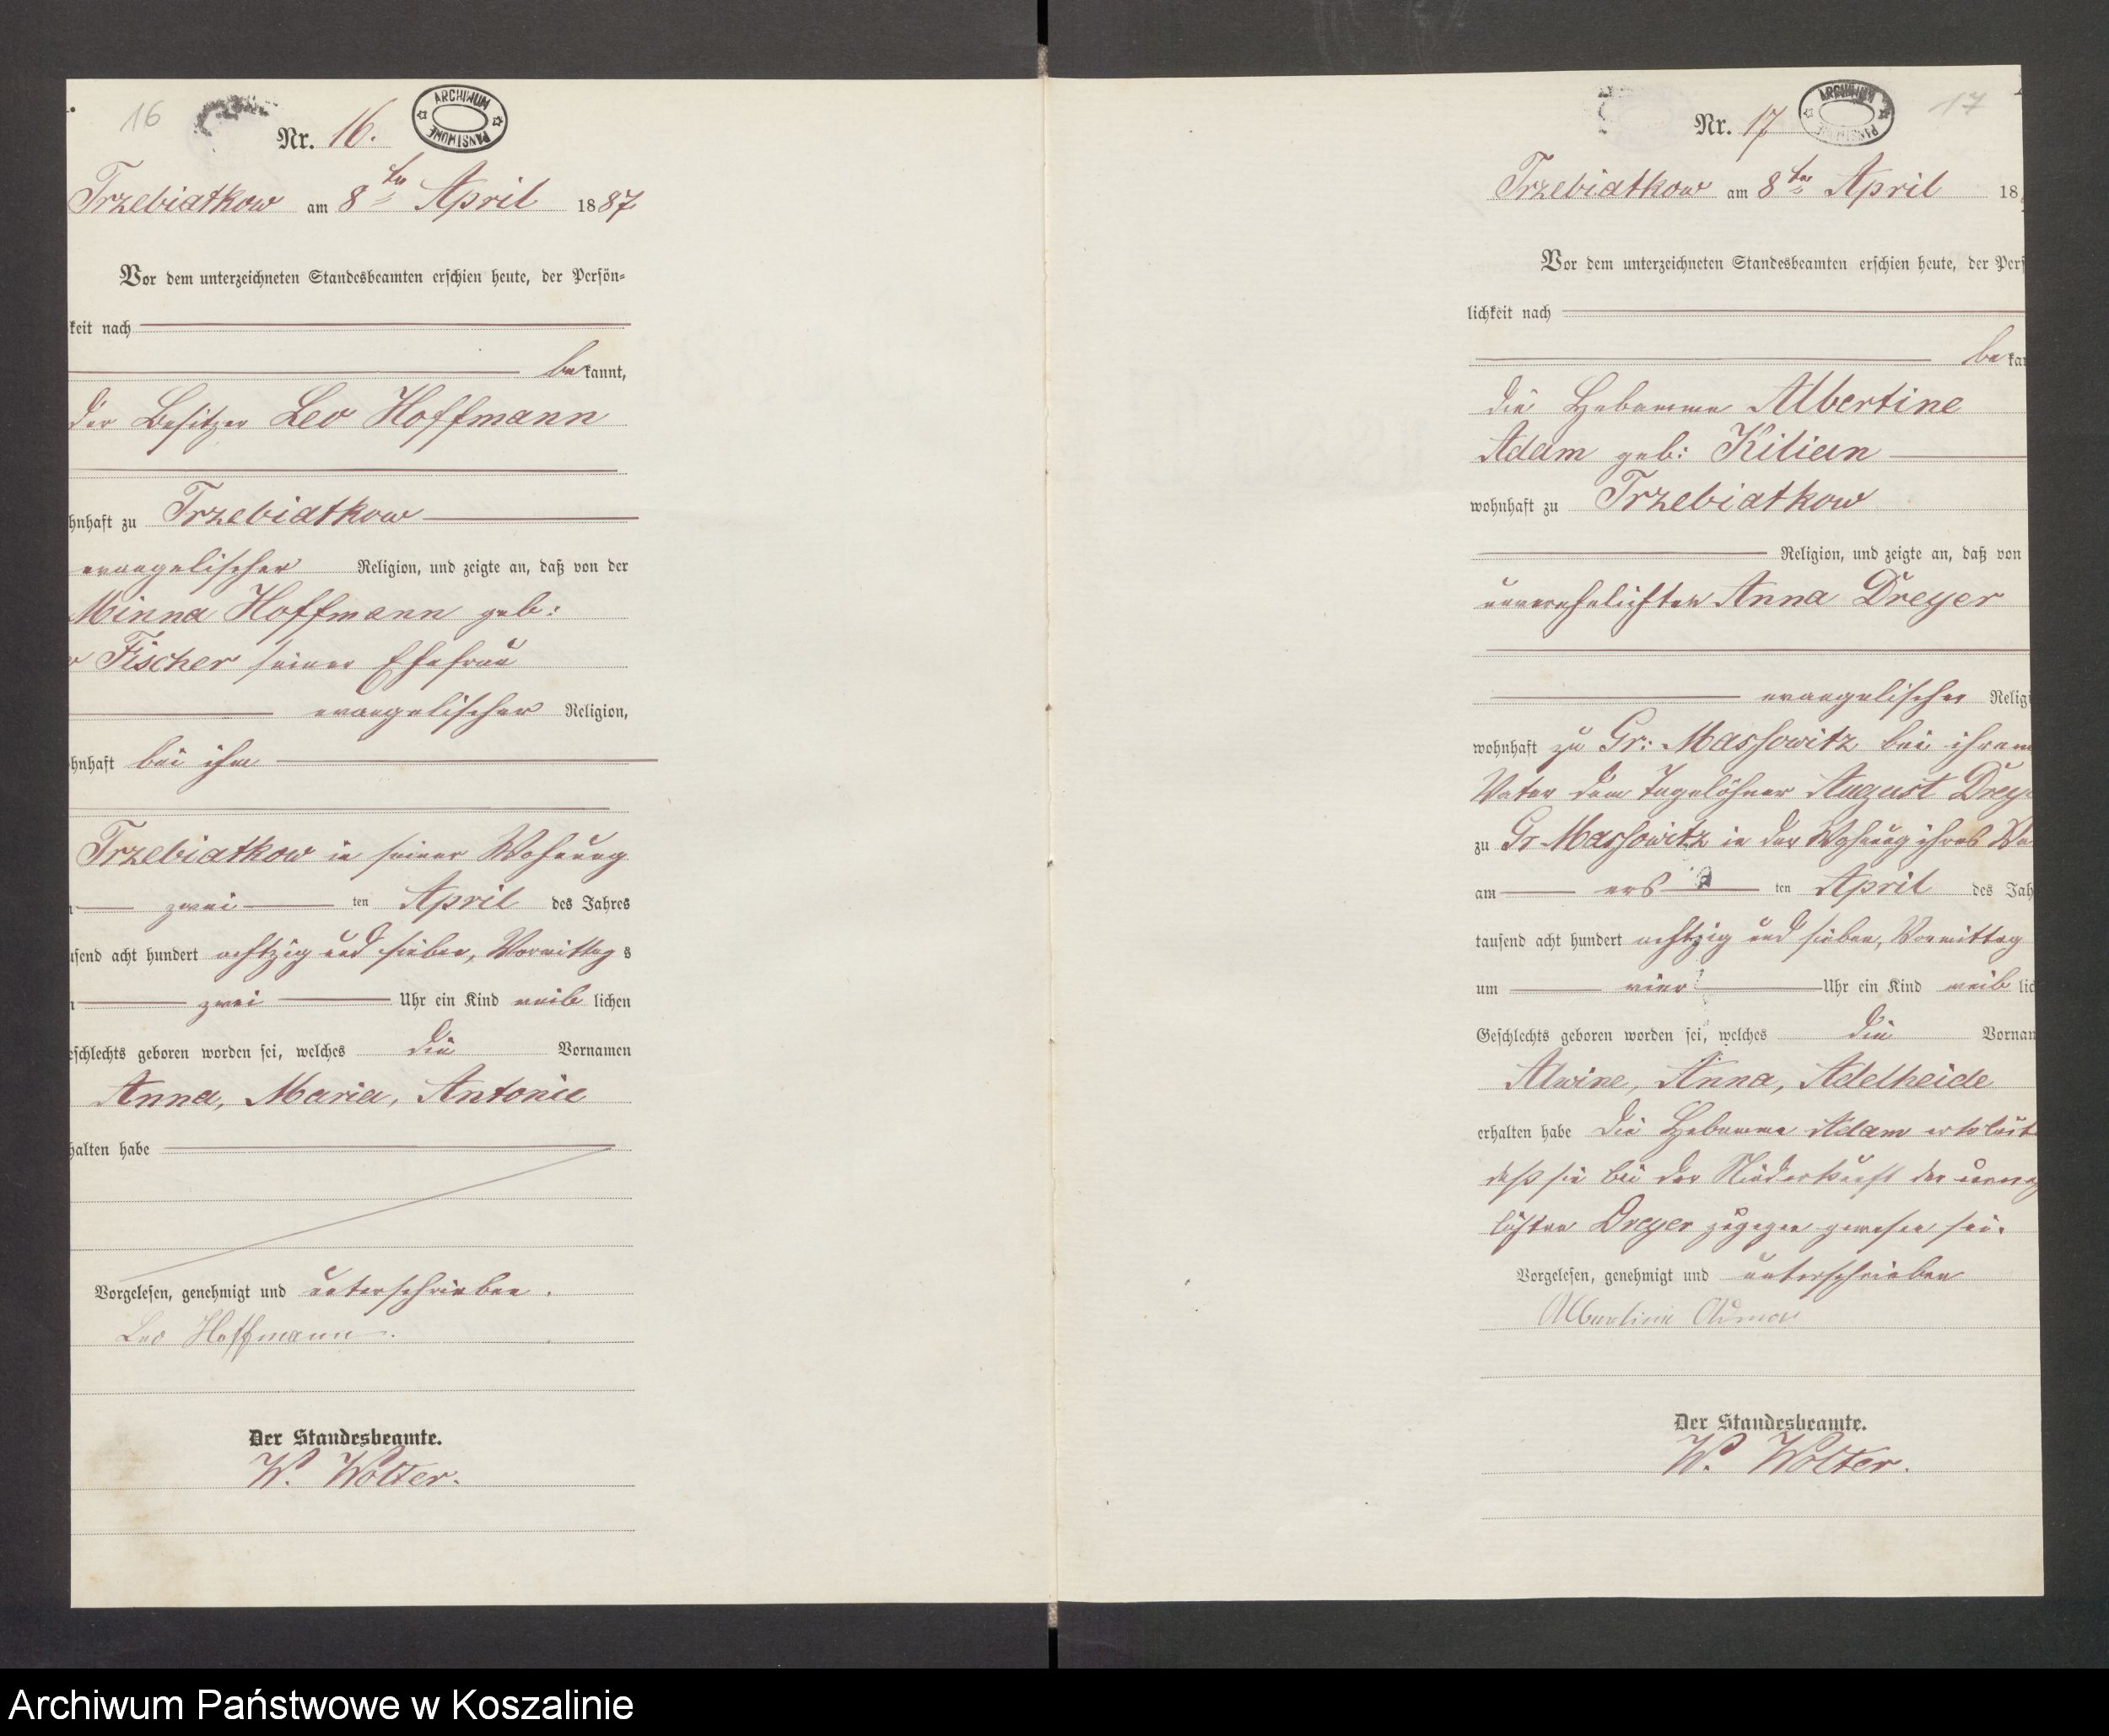 16
Nr. 16.
ARCHIWUM PAŃSTWOWE
Trzebiatkow am 8ten April 1887
Vor dem unterzeichneten Standesbeamten erschien heute, der Persön-
keit nach
bekannt,
der Besitzer Leo Hoffmann
hnhaft zu Trzebiatkow
evangelischer Religion, und zeigte an, daß von der
Minna Hoffmann geb:
Fischer seiner Ehefrau
evangelischer Religion,
hnhaft bei ihm
Trzebiatkow in seiner Wohnung
zwei ten April des Jahres
usend acht hundert achtzig und sieben, Vormittag s
zwei Uhr ein Kind weib lichen
eschlechts geboren worden sei, welches die Vornamen
Anna, Maria, Antonie
halten habe
Vorgelesen, genehmigt und unterschrieben.
Leo Hoffmann.
Der Standesbeamte.
W. Wolter.
17
Nr. 17
ARCHIWUM PAŃSTWOWE
Trzebiatkow am 8ten April 18
Vor dem unterzeichneten Standesbeamten erschien heute, der Pers
lichkeit nach
bekan
die Hebamme Albertine
Adam geb: Kilian
wohnhaft zu Trzebiatkow
Religion, und zeigte an, daß von
unverehelichten Anna Dreyer
evangelischer Relig
wohnhaft zu Gr: Massowitz bei ihrem
Vater dem Tagelöhner August Drey
zu Gr. Massowitz in der Wohnung ihres Va
am ers ten April des Jah
tausend acht hundert achtzig und sieben, Vormittag
um vier Uhr ein Kind weib lic
Geschlechts geboren worden sei, welches die Vornam
Alwine, Anna, Adelheide
erhalten habe Die Hebamme Adam
daß sie bei der Niederkunft der
lichten Dreyer zugegen gewesen sei.
Vorgelesen, genehmigt und unterschrieben
Albertine Adam
Der Standesbeamte.
W. Wolter.
Archiwum Państwowe w Koszalinie